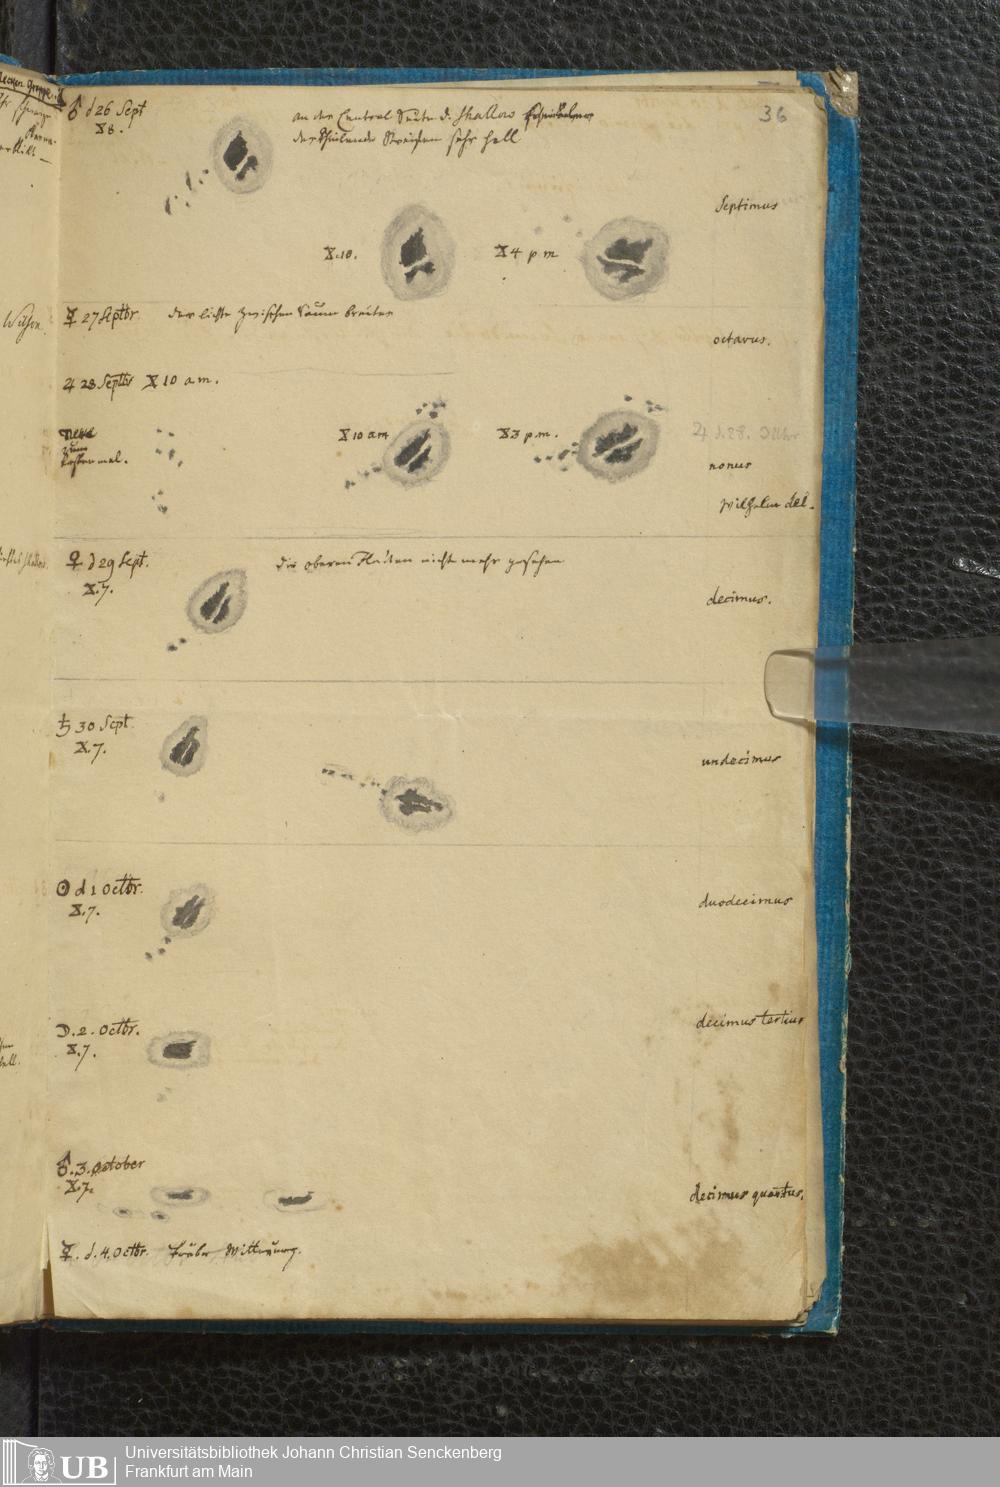 36
♂ d 26 Sept
X 8.
an der Central Seite d. Shallow
der theilende Streifen sehr hell
Septimus
X.10.
X 4 p m
☿ 27 Septbr der lichte zwischen Raum breiter
octavus.
♃ 28 Septbr X 10 a m.
zum
erstenmal.
X 10 am
X 3 p.m.
♃ d. 28.
nonus
Wilhelm del.
♀ d 29 Sept.
X.7.
die oberen nicht mehr gesehen
decimus.
♄ 30 Sept
X.7.
undecimus
☉ d 1 Octbr.
X.7.
duodecimus
☽. 2. Octbr.
X.7.
decimus tertius
♂. 3. October
X.7.
decimus quartus.
☿. d. 4. Octbr. trübe Witterung.
UB
Universitätsbibliothek Johann Christian Senckenberg
Frankfurt am Main